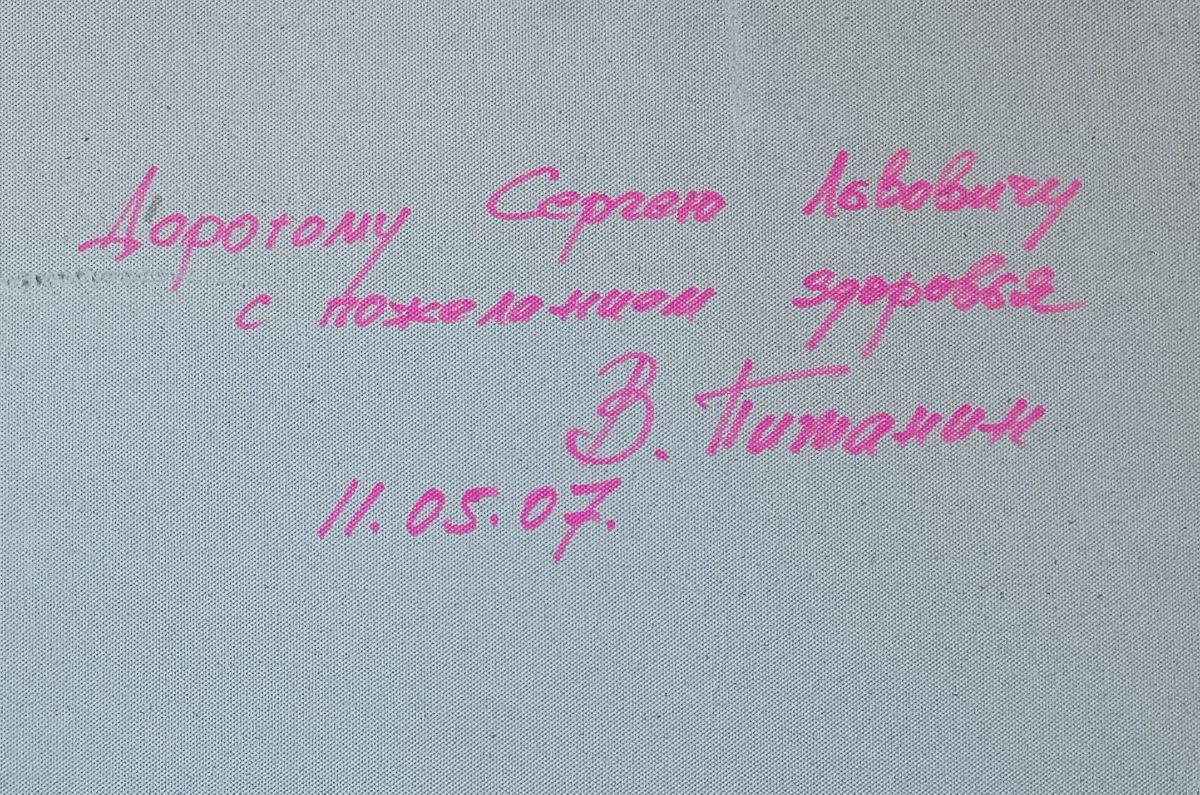 Дорогому Сергею Львовичу
с пожеланием здоровья
В. Питанин
11.05.07.